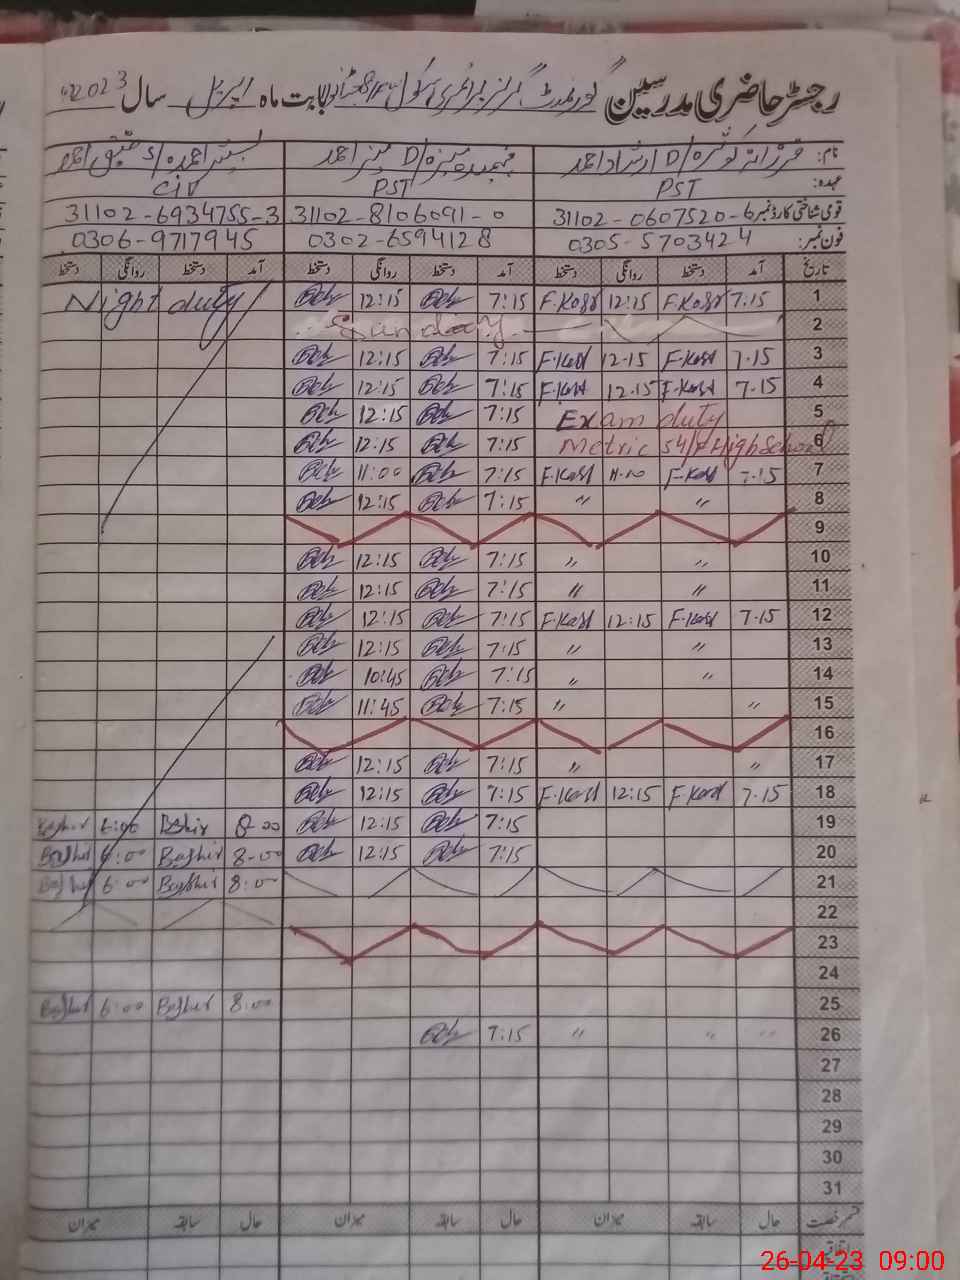 رجسٹر حاضری مدرسین گورنمنٹ گرلز پرائمری سکول بابت ماہ اپریل سال 2023
نام: D/O ارشاد احمد D/O منیر احمد بشیر احمد S/O
عہدہ: PST PST C/V
قومی شناختی کارڈ نمبر 31102-0607520-6 31102-8106091-0 31102-6934755-3
فون نمبر: 0305-5703424 0302-6594128 0306-9717945
تاریخ آمد دستخط روانگی دستخط آمد دستخط روانگی دستخط آمد دستخط روانگی دستخط
1 7:15 F.Kosr 12:15 F.Kosr 7:15 12:15 Night duty
2 Sunday
3 7.15 F.Kosr 12.15 F.Kosr 7:15 12:15
4 7.15 F.Kosr 12.15 F.Kosr 7:15 12:15
5 Exam duty 7:15 12:15
6 Metric High School 7:15 12:15
7 7.15 F.Kosr 11.00 F.Kosr 7:15 11:00
8 " " 7:15 12:15
9
10 " " 7:15 12:15
11 " " 7:15 12:15
12 7.15 F.Kosr 12:15 F.Kosr 7:15 12:15
13 " " 7:15 12:15
14 " " 7:15 10:45
15 " " 7:15 11:45
16
17 " " 7:15 12:15
18 7.15 F.Kosr 12:15 F.Kosr 7:15 12:15
19 7:15 12:15 8-00 Bashir 6:00 Bashir
20 7:15 12:15 8-00 Bashir 6:00 Bashir
21 8:00 Bashir 6:00 Bashir
22
23
24
25 8:00 Bashir 6:00 Bashir
26 " " " 7:15
27
28
29
30
31
قسم رخصت حال سابقہ میزان حال سابقہ میزان حال سابقہ میزان
اتفاقیہ
26-04-23 09:00